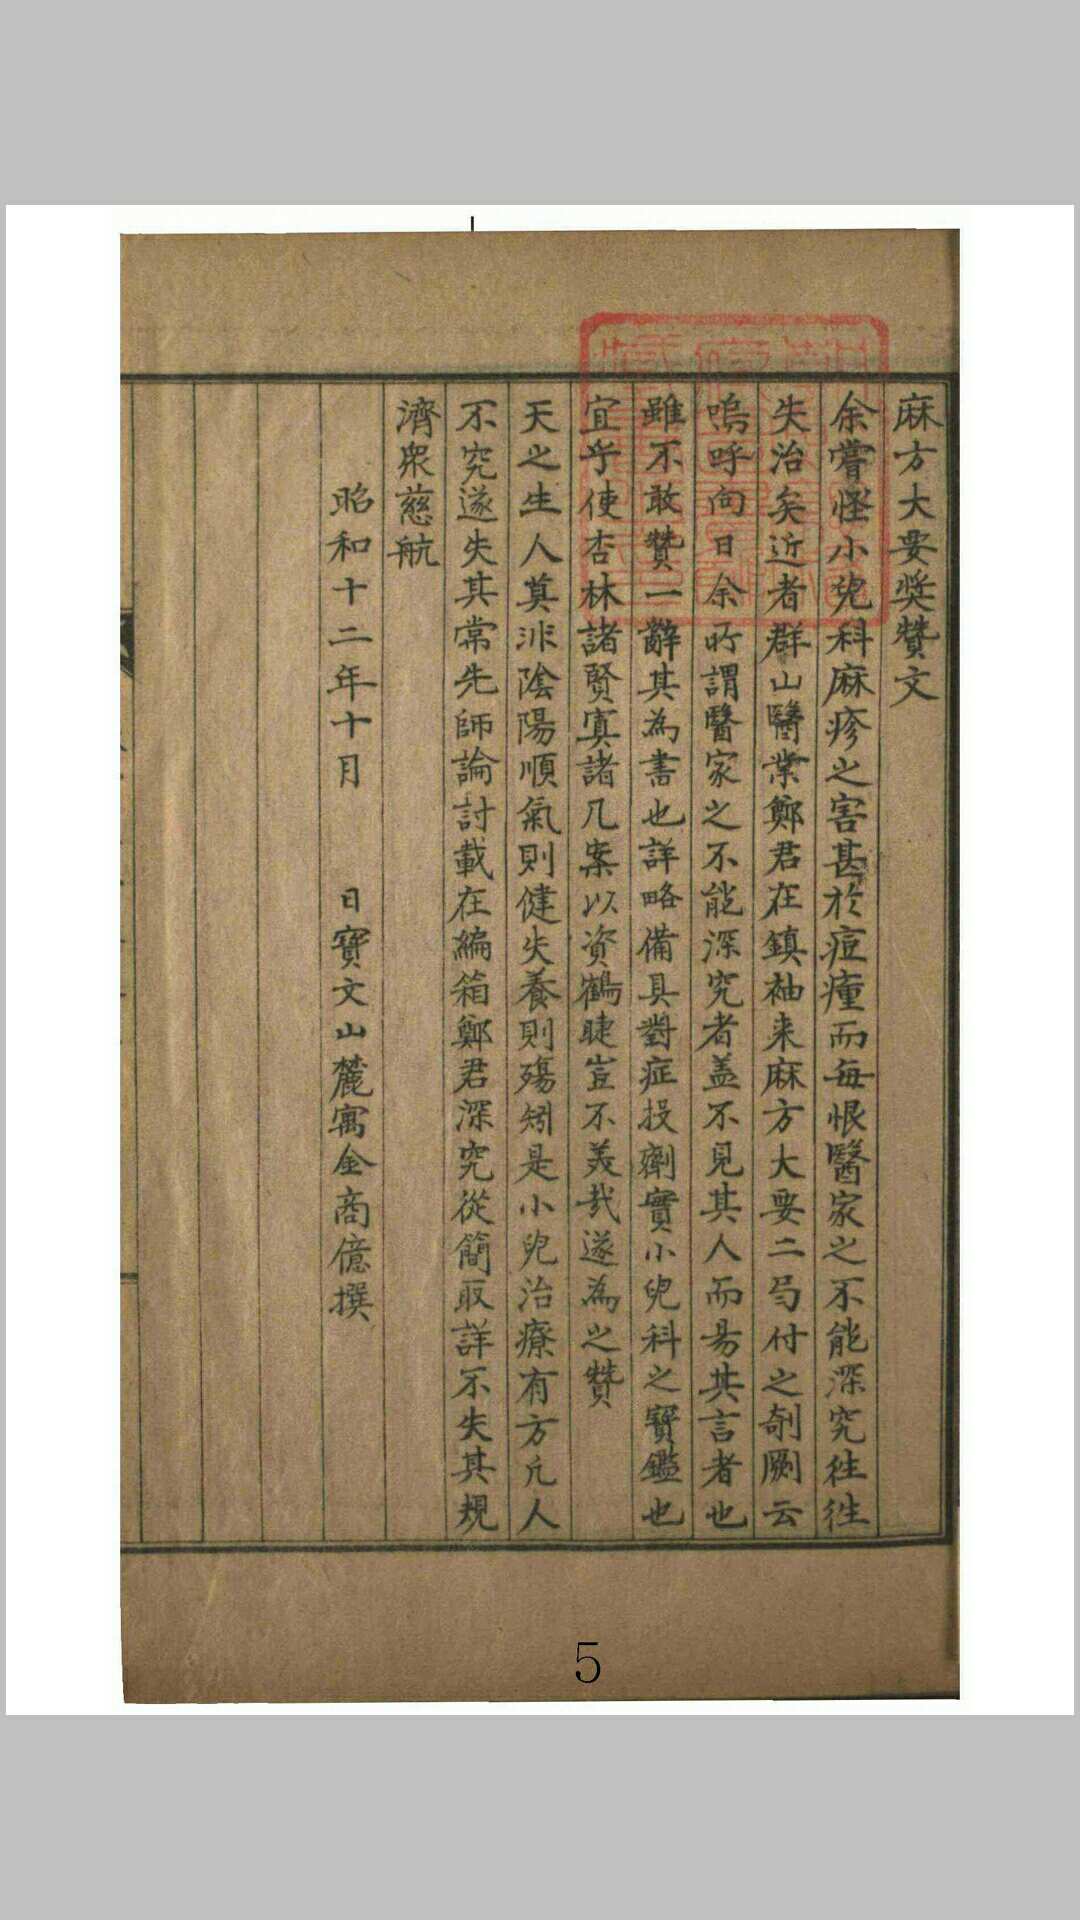 麻方大要奖贊文
余嘗怪小兒科麻疹之害甚於痘瘇而每恨醫家之不能深究徃徃
失治矣近者群山醫業鄭君在鎮袖来麻方大要二㢧付之剞劂云
嗚呼向日余所謂醫家之不能深究者盖不見其人而昜其言者也
雖不敢贊一辭其為書也詳略備具對症投劑實小兒科之寶鑑也
宜乎使杏林諸賢寘諸几案以資鶴睫豈不羙哉遂為之贊
天之生人莫非陰陽順氣則健失養則殤矧是小兒治療有方凢人
不究遂失其常先師論討載在編箱鄭君深究從簡取詳不失其規
濟衆慈航
昭和十二年十月 日寶文山麓寓金商億撰
5